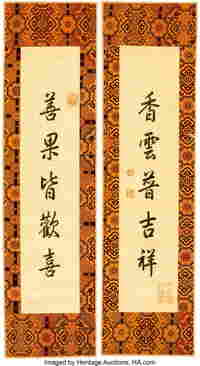 香雲普吉祥
善果皆歡喜
Imaged by Heritage Auctions, HA.com